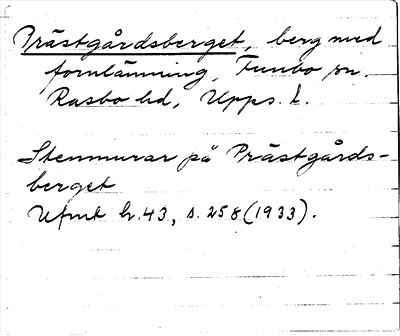 Prästgårdsberget, berg med
fornlämning, Funbo sn.
Rasbo hd, Upps. l.
Stenmurar på Prästgårds-
berget
Ufmt h. 43, s. 258 (1933).